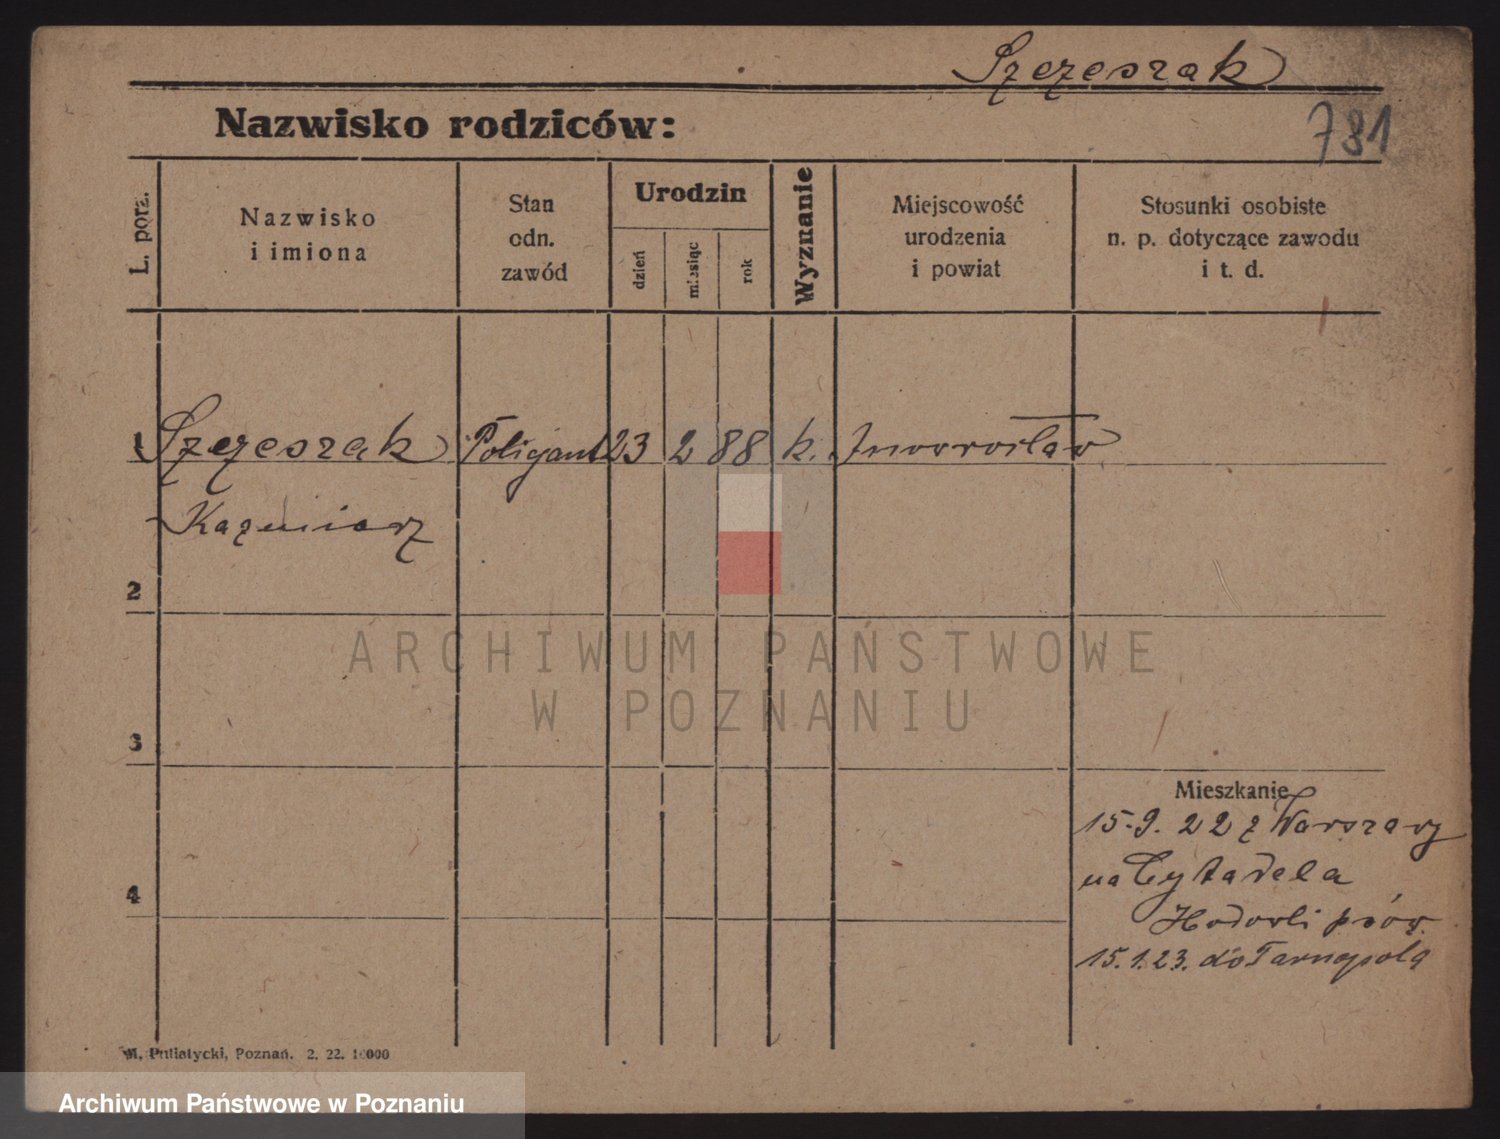 Szczeszak
Nazwisko rodziców:
781
L. porz.
Nazwisko
i imiona
Stan
odn.
zawód
Urodzin
dzień
miesiąc
rok
Wyznanie
Miejscowość
urodzenia
i powiat
Stosunki osobiste
n. p. dotyczące zawodu
i t. d.
1 Szczeszak Poligant 23 2 88 k. Inowrocław
Kazmierz
2
3
4
Mieszkanie
15.9.22 z Warszawy
na Cytadela
15.1.23. do Tarnopola
ARCHIWUM PAŃSTWOWE
W POZNANIU
M. Putiatycki, Poznań. 2. 22. 10000
Archiwum Państwowe w Poznaniu